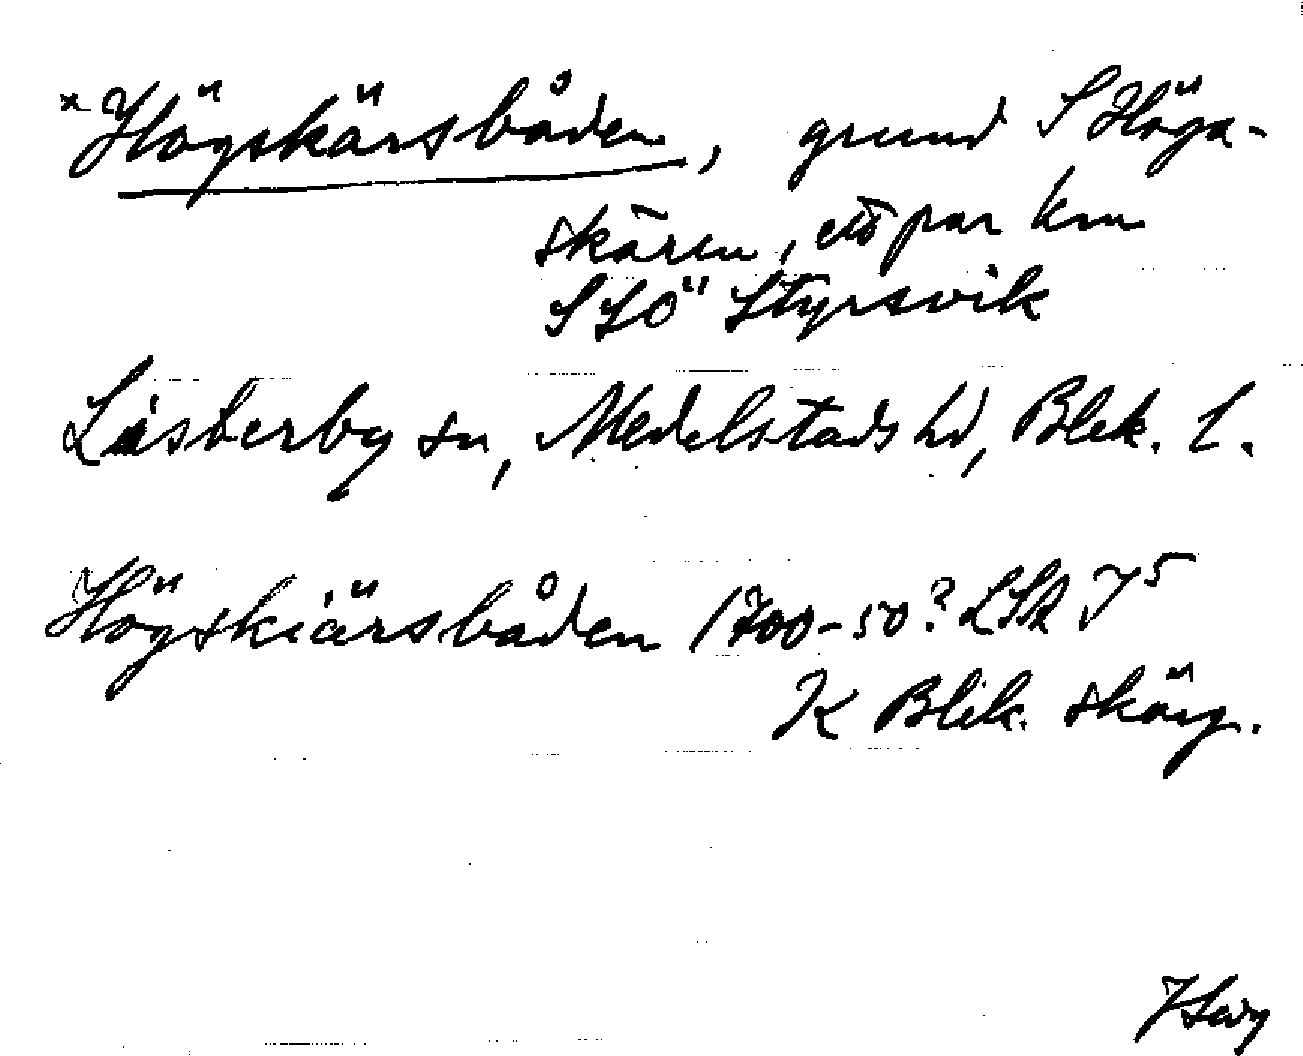 x Högskärsbåden, grund S Höga-
skären, ett par km
SSÖ Styrsvik
Listerby sn, Medelstads hd, Blek. l.
Högskiärsbåden 1700-50? LSA J⁵
K Blek. skärg.